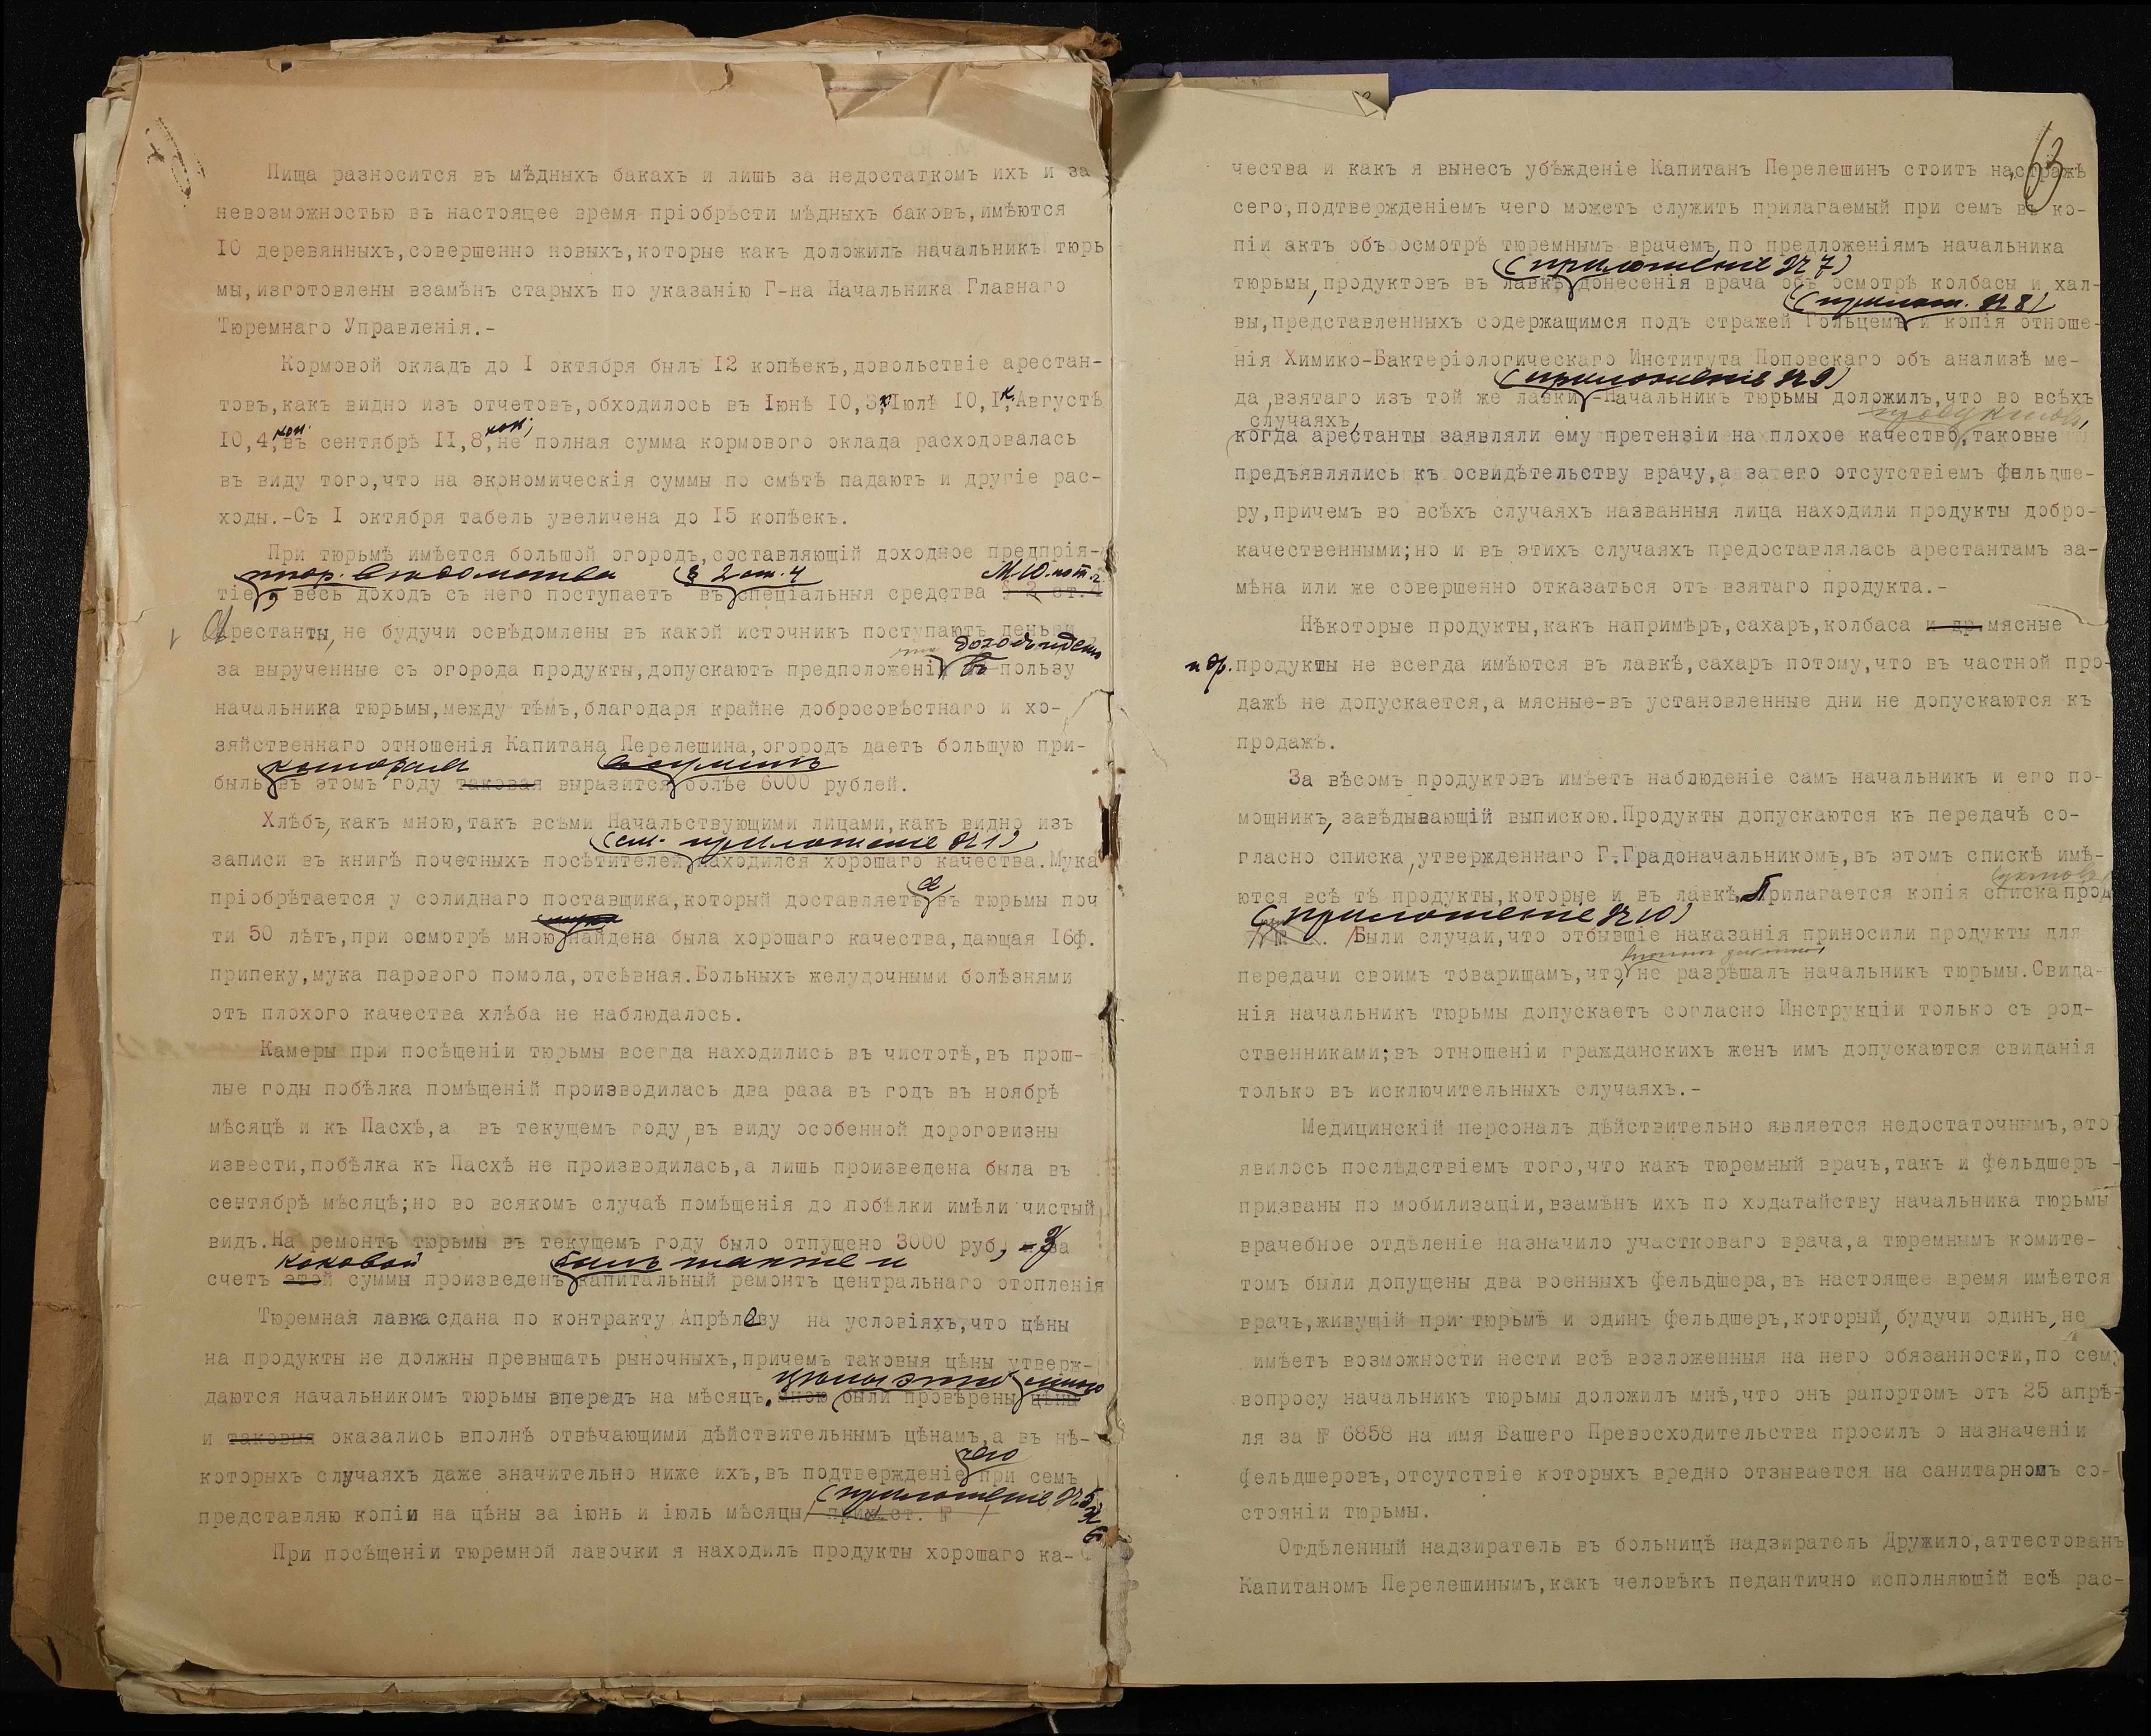 Пища разносится въ мѣдныхъ бакахъ и лишь за недостаткомъ ихъ и за
невозможностью въ настоящее время пріобрѣсти мѣдныхъ баковъ,имѣются
10 деревянныхъ,совершенно новыхъ,которые какъ доложилъ начальникъ тюрь
мы,изготовлены взамѣнъ старыхъ по указанію Г-на Начальника Главнаго
Тюремнаго Управленія.-
Кормовой окладъ до 1 октября былъ 12 копѣекъ,довольствіе арестан-
товъ,какъ видно изъ отчетовъ,обходилось въ Іюнѣ 10,3к,Іюлѣ 10,1к,Августѣ
10,4,коп. въ сентябрѣ 11,8,коп; не полная сумма кормового оклада расходовалась
въ виду того,что на экономическія суммы по смѣтѣ падаютъ и другіе рас-
ходы.-Съ 1 октября табель увеличена до 15 копѣекъ.
При тюрьмѣ имѣется большой огородъ,составляющій доходное предпрія-
тюр. вѣдомства § 2 ст. 4 М.Ю.
тіе, весь доходъ съ него поступаетъ въ спеціальныя средства § 2 ст.4
Арестанты, не будучи освѣдомлены въ какой источникъ поступаютъ деньги
что доходъ идетъ
за вырученные съ огорода продукты,допускаютъ предположенія въ пользу
начальника тюрьмы,между тѣмъ,благодаря крайне добросовѣстнаго и хо-
зяйственнаго отношенія Капитана Перелешина,огородъ даетъ большую при-
которая
быль въ этомъ году таковая выразится болѣе 6000 рублей.
Хлѣбъ, какъ мною,такъ всѣми Начальствующими лицами,какъ видно изъ
(см. приложеніе № 1)
записи въ книгѣ почетныхъ посѣтителей находился хорошаго качества.Мука
пріобрѣтается у солиднаго поставщика,который доставляетъ въ тюрьмы поч
мука
ти 50 лѣтъ,при осмотрѣ мною найдена была хорошаго качества,дающая 16ф.
припеку,мука парового помола,отсѣвная.Больныхъ желудочными болѣзнями
отъ плохого качества хлѣба не наблюдалось.
Камеры при посѣщеніи тюрьмы всегда находились въ чистотѣ,въ прош-
лые годы побѣлка помѣщеній производилась два раза въ годъ въ ноябрѣ
мѣсяцѣ и къ Пасхѣ,а въ текущемъ году,въ виду особенной дороговизны
извести,побѣлка къ Пасхѣ не производилась,а лишь произведена была въ
сентябрѣ мѣсяцѣ;но во всякомъ случаѣ помѣщенія до побѣлки имѣли чистый
видъ.На ремонтъ тюрьмы въ текущемъ году было отпущено 3000 руб, за
каковой былъ также и
счетъ этой суммы произведенъ капитальный ремонтъ центральнаго отопленія
Тюремная лавка сдана по контракту Апрѣлеву на условіяхъ,что цѣны
на продукты не должны превышать рыночныхъ,причемъ таковыя цѣны утверж-
цѣны эти мною
даются начальникомъ тюрьмы впередъ на мѣсяцъ. мною были провѣрены цѣны
и таковыя оказались вполнѣ отвѣчающими дѣйствительнымъ цѣнамъ,а въ нѣ-
чего
которыхъ случаяхъ даже значительно ниже ихъ,въ подтвержденіе при семъ
(приложеніе № 5 и 6
представляю копіи на цѣны за іюнь и іюль мѣсяцы/ прил.ст. № /
При посѣщеніи тюремной лавочки я находилъ продукты хорошаго ка-
63
чества и какъ я вынесъ убѣжденіе Капитанъ Перелешинъ стоитъ на стражѣ
сего,подтвержденіемъ чего можетъ служить прилагаемый при семъ въ ко-
піи актъ объ осмотрѣ тюремнымъ врачемъ,по предложеніямъ начальника
(приложеніе № 7)
тюрьмы,продуктовъ въ лавкѣ,донесенія врача объ осмотрѣ колбасы и хал-
(прилож. № 8)
вы,представленныхъ содержащимся подъ стражей Гольцемъ и копія отноше-
нія Химико-Бактеріологическаго Института Поповскаго объ анализѣ ме-
(приложеніе № 9)
да,взятаго изъ той же лавки.-Начальникъ тюрьмы доложилъ,что во всѣхъ
случаяхъ, продуктовъ,
когда арестанты заявляли ему претензіи на плохое качество,таковые
предъявлялись къ освидѣтельству врачу,а за его отсутствіемъ фельдше-
ру,причемъ во всѣхъ случаяхъ названныя лица находили продукты добро-
качественными;но и въ этихъ случаяхъ предоставлялась арестантамъ за-
мѣна или же совершенно отказаться отъ взятаго продукта.-
Нѣкоторые продукты,какъ напримѣръ,сахаръ,колбаса и др.мясные
и др. продукты не всегда имѣются въ лавкѣ,сахаръ потому,что въ частной про-
дажѣ не допускается,а мясные-въ установленные дни не допускаются къ
продажѣ.
За вѣсомъ продуктовъ имѣетъ наблюденіе самъ начальникъ и его по-
мощникъ, завѣдывающій выпискою.Продукты допускаются къ передачѣ со-
гласно списка,утвержденнаго Г.Градоначальникомъ,въ этомъ спискѣ имѣ-
уктовъ
ются всѣ тѣ продукты,которые и въ лавкѣ.Прилагается копія списка прод
(приложеніе № 10)
/ № . /Были случаи,что отбывшіе наказанія приносили продукты для
передачи своимъ товарищамъ,что не разрѣшалъ начальникъ тюрьмы.Свида-
нія начальникъ тюрьмы допускаетъ согласно Инструкціи только съ род-
ственниками;въ отношеніи гражданскихъ женъ имъ допускаются свиданія
только въ исключительныхъ случаяхъ.-
Медицинскій персоналъ дѣйствительно является недостаточнымъ,это
явилось послѣдствіемъ того,что какъ тюремный врачъ,такъ и фельдшеръ -
призваны по мобилизаціи,взамѣнъ ихъ по ходатайству начальника тюрьмы
врачебное отдѣленіе назначило участковаго врача,а тюремнымъ комите-
томъ были допущены два военныхъ фельдшера,въ настоящее время имѣется
врачъ,живущій при тюрьмѣ и одинъ фельдшеръ,который,будучи одинъ,не
имѣетъ возможности нести всѣ возложенныя на него обязанности,по сему
вопросу начальникъ тюрьмы доложилъ мнѣ,что онъ рапортомъ отъ 25 апрѣ-
ля за № 6858 на имя Вашего Превосходительства просилъ о назначеніи
фельдшеровъ,отсутствіе которыхъ вредно отзывается на санитарномъ со-
стояніи тюрьмы.
Отдѣленный надзиратель въ больницѣ надзиратель Дружило,аттестованъ
Капитаномъ Перелешинымъ,какъ человѣкъ педантично исполняющій всѣ рас-